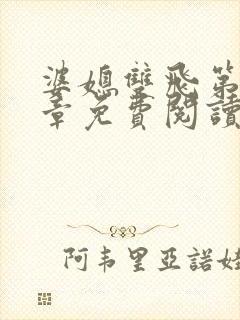 婆媳雙飛第
章免費閱讀
阿韦里亞諾娃